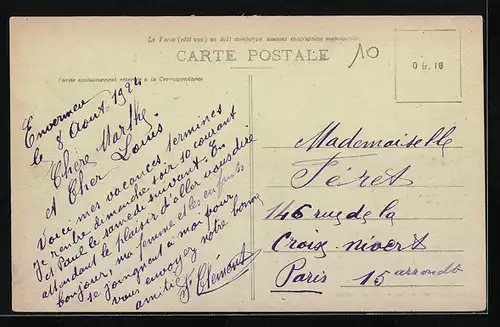 Le Verso (côté vue) ne doit comporter aucune inscription manuscrite
CARTE POSTALE
10
0 fr. 10
Partie exclusivement réservée à la Correspondance
Envermeu
le 8 Août 1924
Chère Marthe
et Cher Louis
Voici mes vacances termines
je rentre dimanche soir 10 courant
et Paul le samedi suivant. En
attendant le plaisir d'aller vous dire
bonjour, ma femme et les enfants
se joingnent a moi pour
vous envoyez notre bonne
amitié
F Clément
Mademoiselle
Féret
146 rue de la
Croix-nivert
Paris 15 arrondt